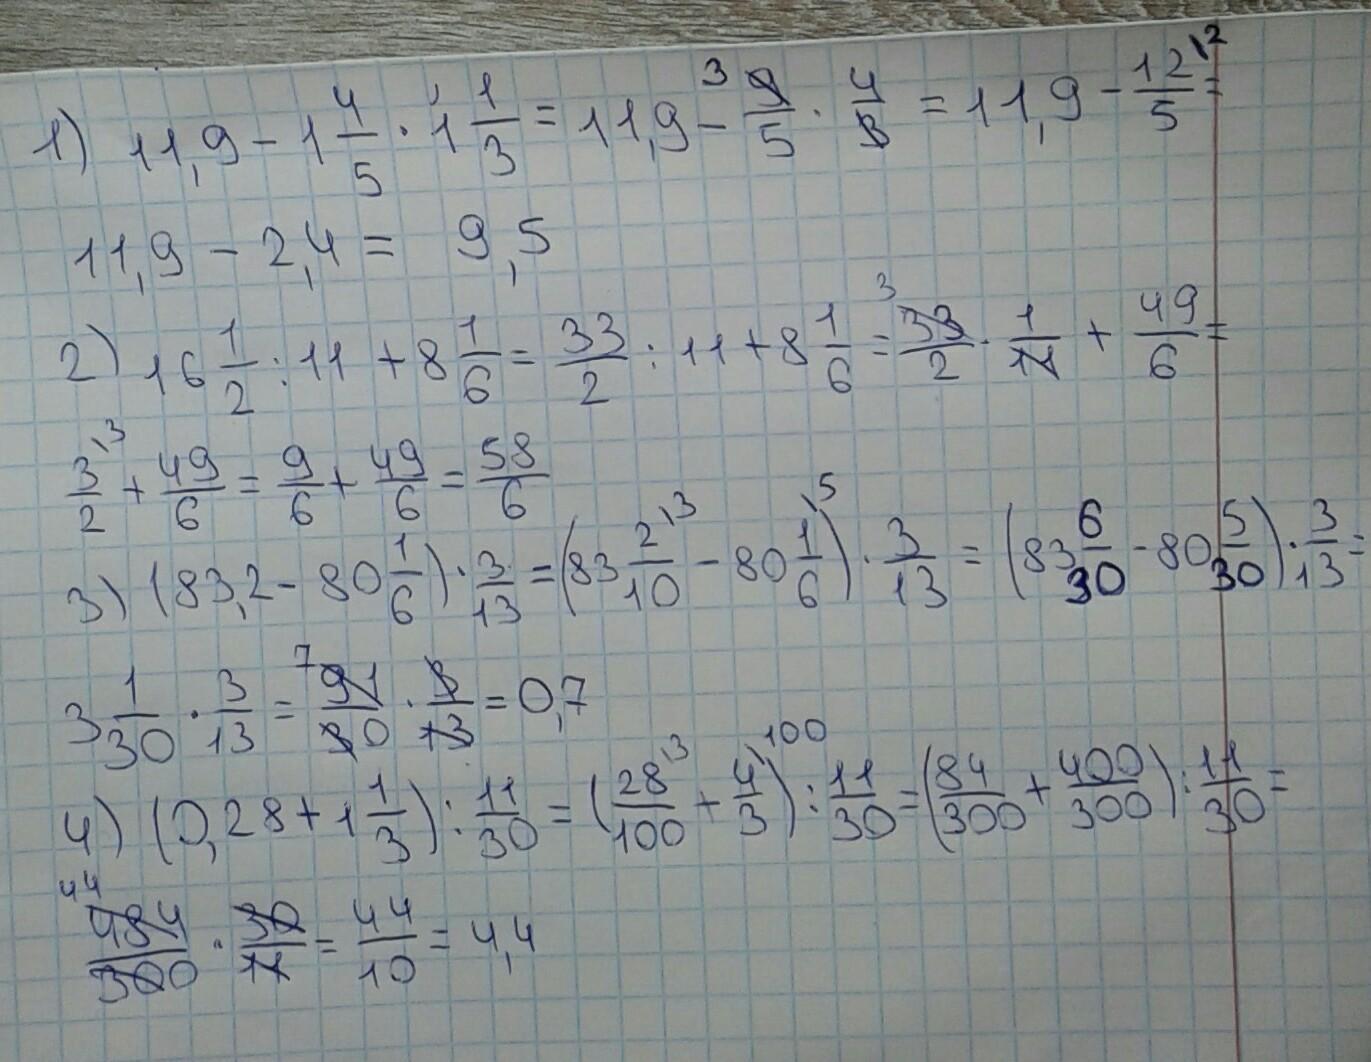 1) 11,9 - 1 4/5 · 1 1/3 = 11,9 - ³ 9/5 · 4/3 = 11,9 - 12\²/5 =
11,9 - 2,4 = 9,5
2) 16 1/2 : 11 + 8 1/6 = 33/2 : 11 + 8 1/6 = ³ 33/2 · 1/11 + 49/6 =
3\³/2 + 49/6 = 9/6 + 49/6 = 58/6
3) (83,2 - 80 1/6) · 3/13 = (83 2\³/10 - 80 1\⁵/6) · 3/13 = (83 6/30 - 80 5/30) · 3/13 =
3 1/30 · 3/13 = ⁷ 91/30 · 3/13 = 0,7
4) (0,28 + 1 1/3) : 11/30 = (28\³/100 + 4\¹⁰⁰/3) : 11/30 = (84/300 + 400/300) : 11/30 =
⁴⁴ 484/300 · 30/11 = 44/10 = 4,4